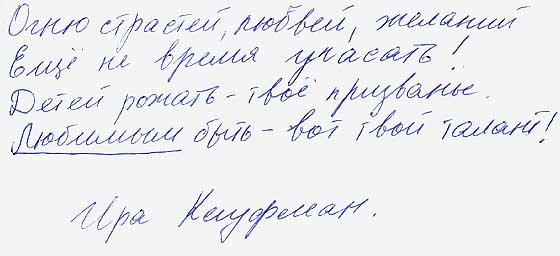 Огню страстей, любвей, желаний
Ещё не время угасать!
Детей рожать - твоё призванье.
Любимым быть - вот твой талант!
Ира Кауфман.